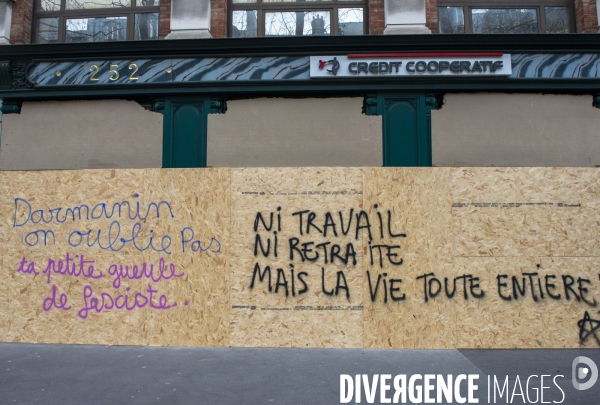 252
CREDIT COOPERATIF
Darmanin
on oublie pas
ta petite gueule
de fasciste.
NI TRAVAIL
NI RETRAITE
MAIS LA VIE TOUTE ENTIERE
DIVERGENCE IMAGES